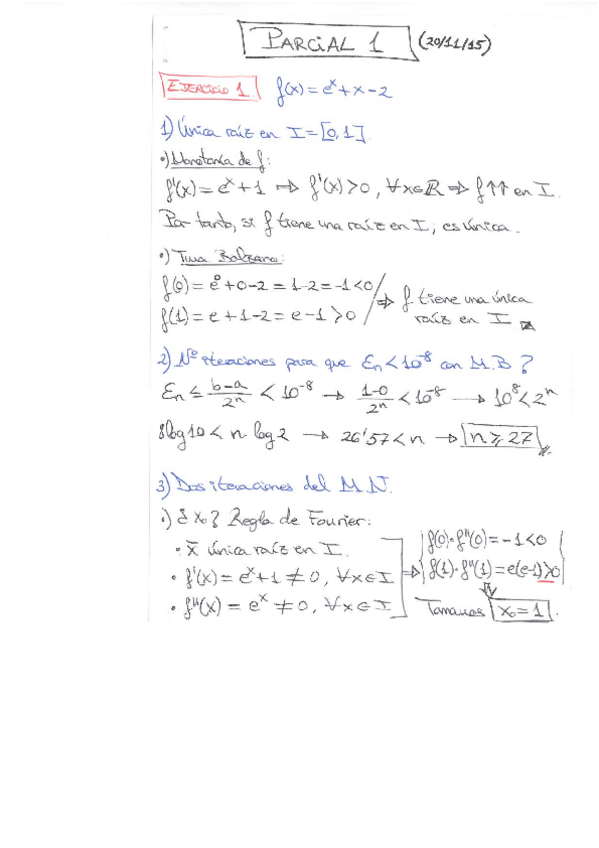 PARCIAL 1 (20/11/15)
EJERCICIO 1 f(x) = eˣ + x - 2
1) Única raíz en I = [0,1]
•) Monotonía de f:
f'(x) = eˣ + 1 ⇒ f'(x) > 0, ∀x∈ℝ ⇒ f ↑↑ en I.
Por tanto, si f tiene una raíz en I, es única.
•) Tma Bolzano:
f(0) = e⁰ + 0 - 2 = 1 - 2 = -1 < 0
f(1) = e + 1 - 2 = e - 1 > 0
⇒ f tiene una única
raíz en I
2) Nº iteraciones para que En < 10⁻⁸ con M.B?
En ≤ (b-a)/2ⁿ < 10⁻⁸ → (1-0)/2ⁿ < 10⁻⁸ → 10⁸ < 2ⁿ
8log10 < n·log2 → 26'57 < n → n ≥ 27
3) Dos iteraciones del M.N.
•) ¿x₀? Regla de Fourier:
• x̄ única raíz en I.
• f'(x) = eˣ + 1 ≠ 0, ∀x∈I
• f''(x) = eˣ ≠ 0, ∀x∈I
⇒ f(0)·f''(0) = -1 < 0
f(1)·f''(1) = e(e-1) > 0
Tomamos x₀ = 1.